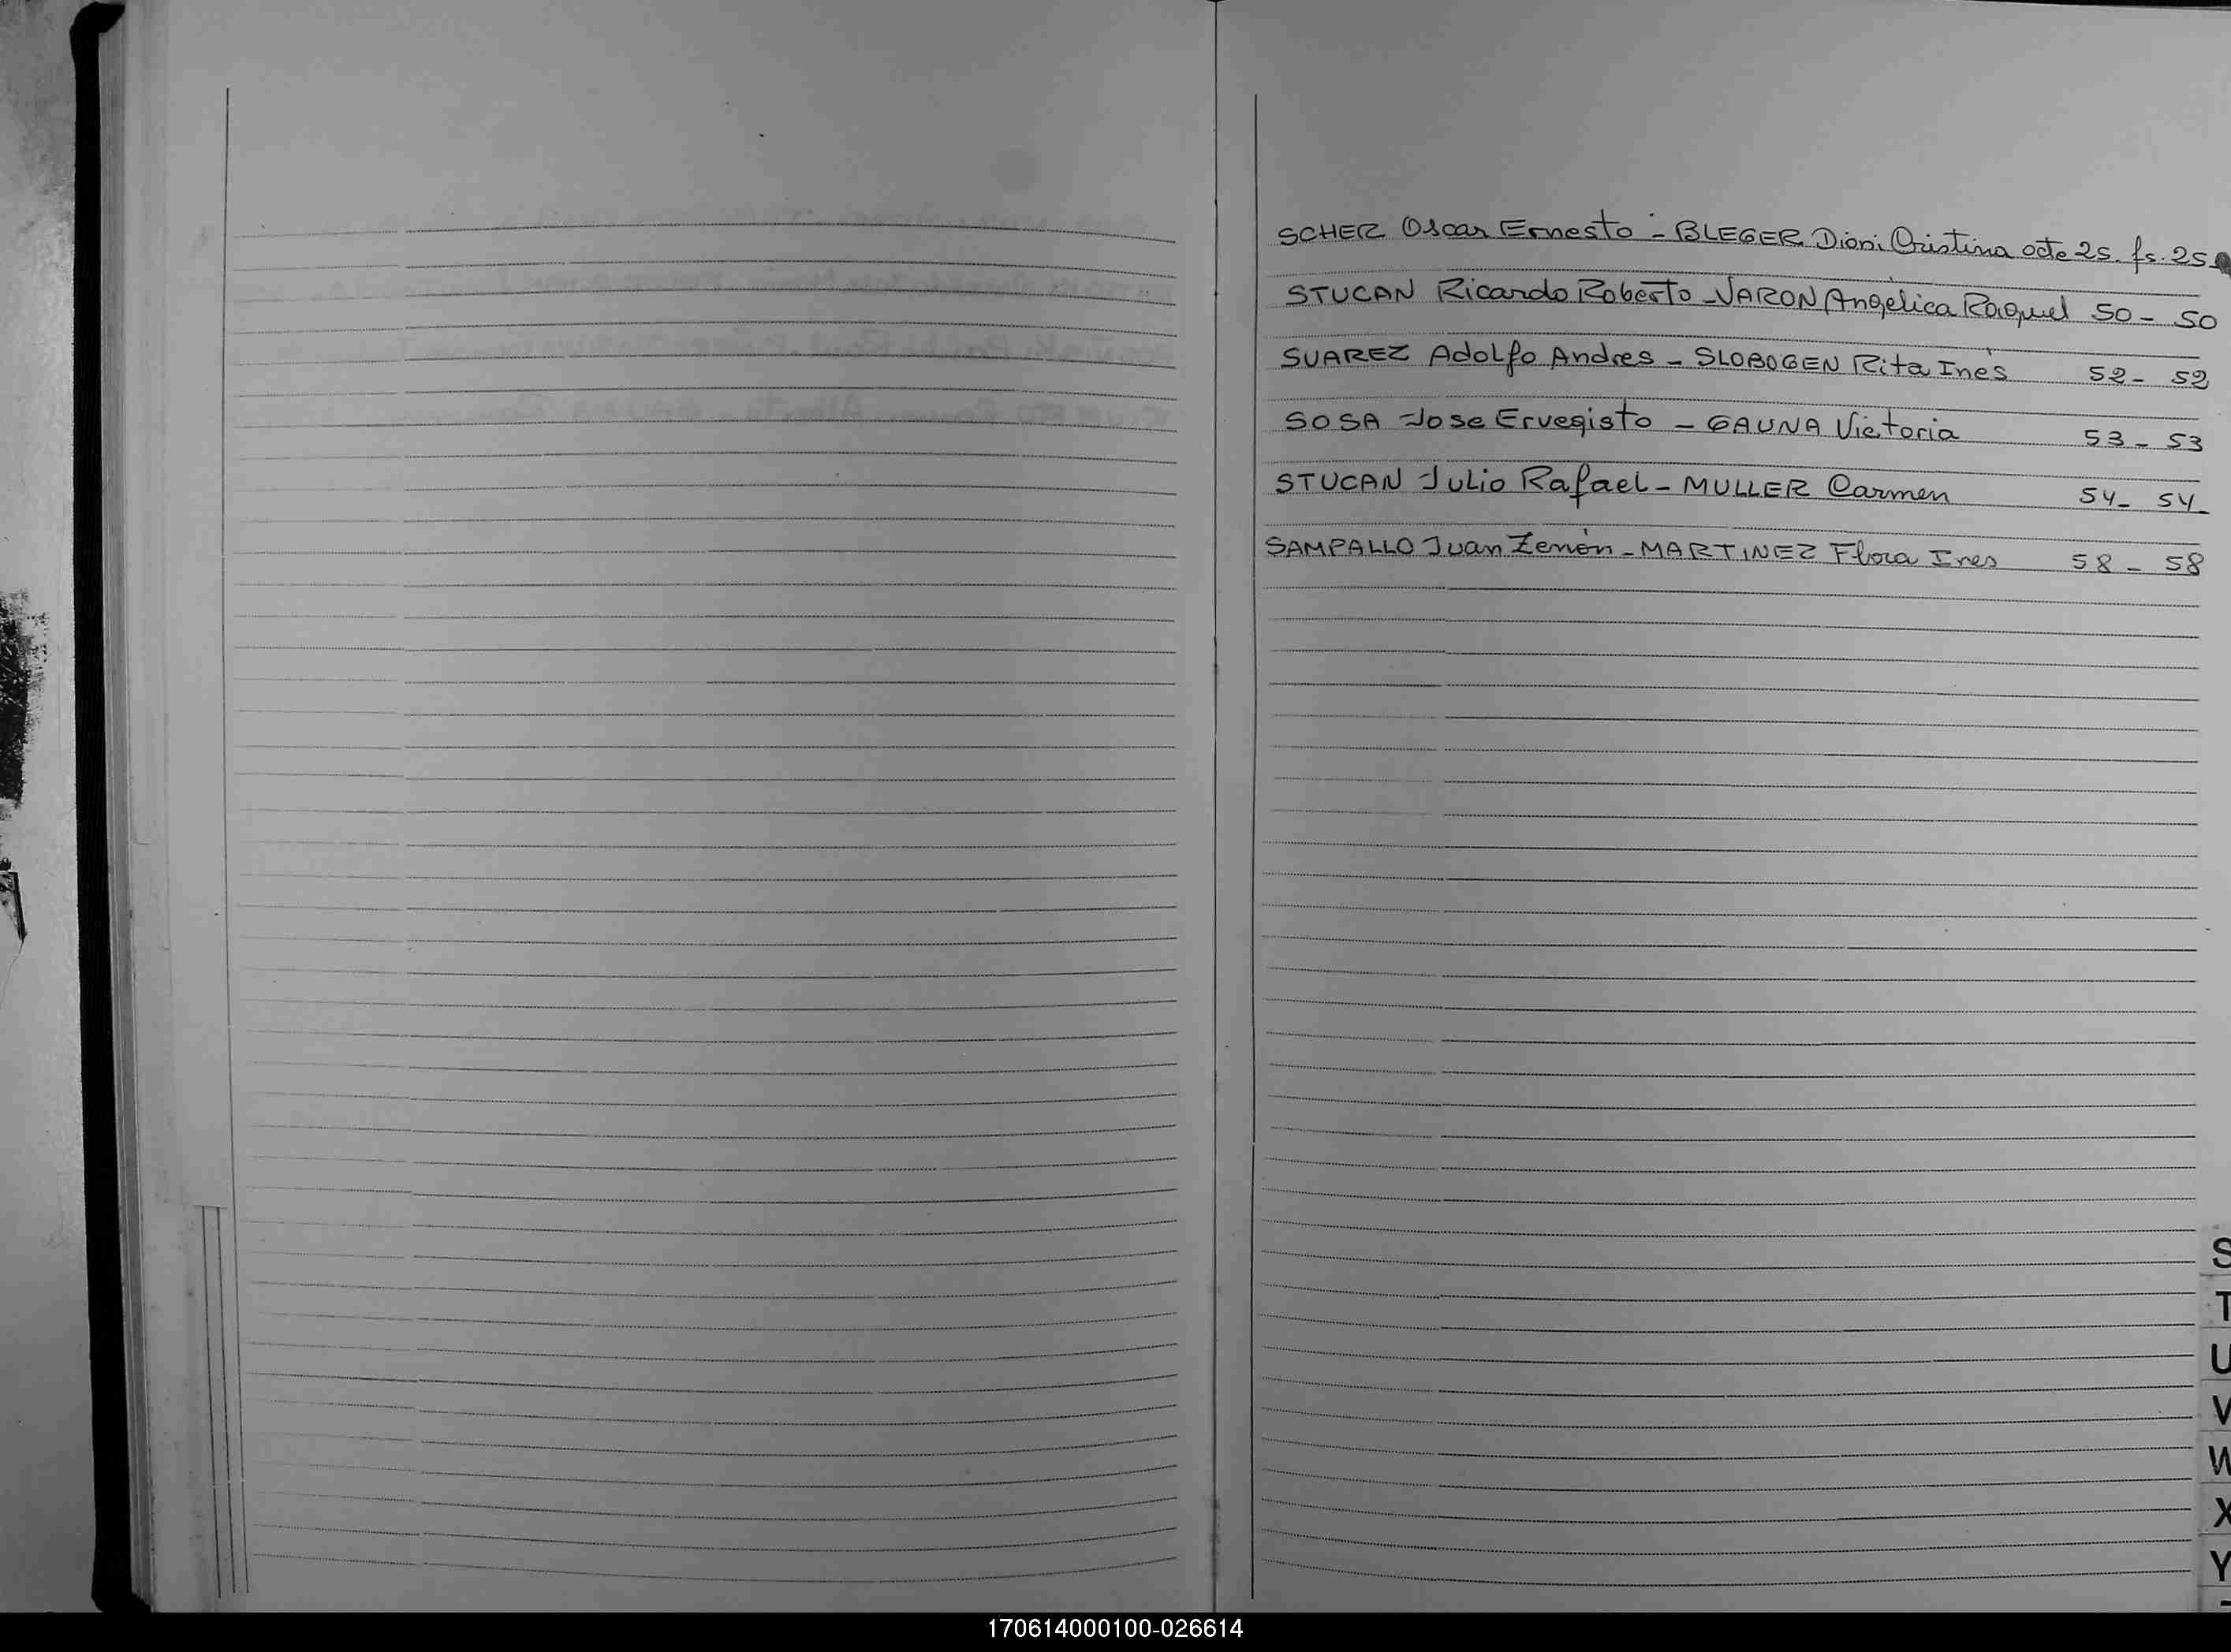 SCHER Oscar Ernesto - BLEGER Dioni Cristina acta 25. fs. 25
STUCAN Ricardo Roberto - VARON Angélica Raquel 50 - 50
SUAREZ Adolfo Andres - SLOBOGEN Rita Inés 52 - 52
SOSA Jose Ervegisto - GAUNA Victoria 53 - 53
STUCAN Julio Rafael - MULLER Carmen 54 - 54 -
SAMPALLO Juan Zenón - MARTINEZ Flora Ines 58 - 58
S
T
U
V
W
X
Y
170614000100-026614